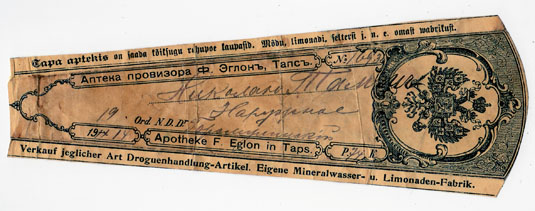 Tapa aptekis on saada kõiksugu rohupoe kaupasid. Mõdu, limonadi, selterst j. n. e. omast wabrikust.
Аптека провизора Ф. Эглонъ, Тапсъ.
№
Николаю
Наружное
19
Ord N. D. Dr
19 18
Apotheke F. Eglon in Taps.
P. K.
Verkauf jeglicher Art Droguenhandlung-Artikel. Eigene Mineralwasser- u. Limonaden-Fabrik.